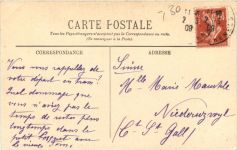 1,30
CARTE POSTALE
Tous les Pays étrangers n'acceptent pas la Correspondance au recto.
(Se renseigner à la Poste)
CORRESPONDANCE
ADRESSE
Vous vous rappellez de
notre départ en
Quel dommage que
vous n'avez pas le
temps de rester plus
longtemps dans le
petit
le même
Suisse
Mlle Marie
Niederuzwyl
Ct St Gall
09